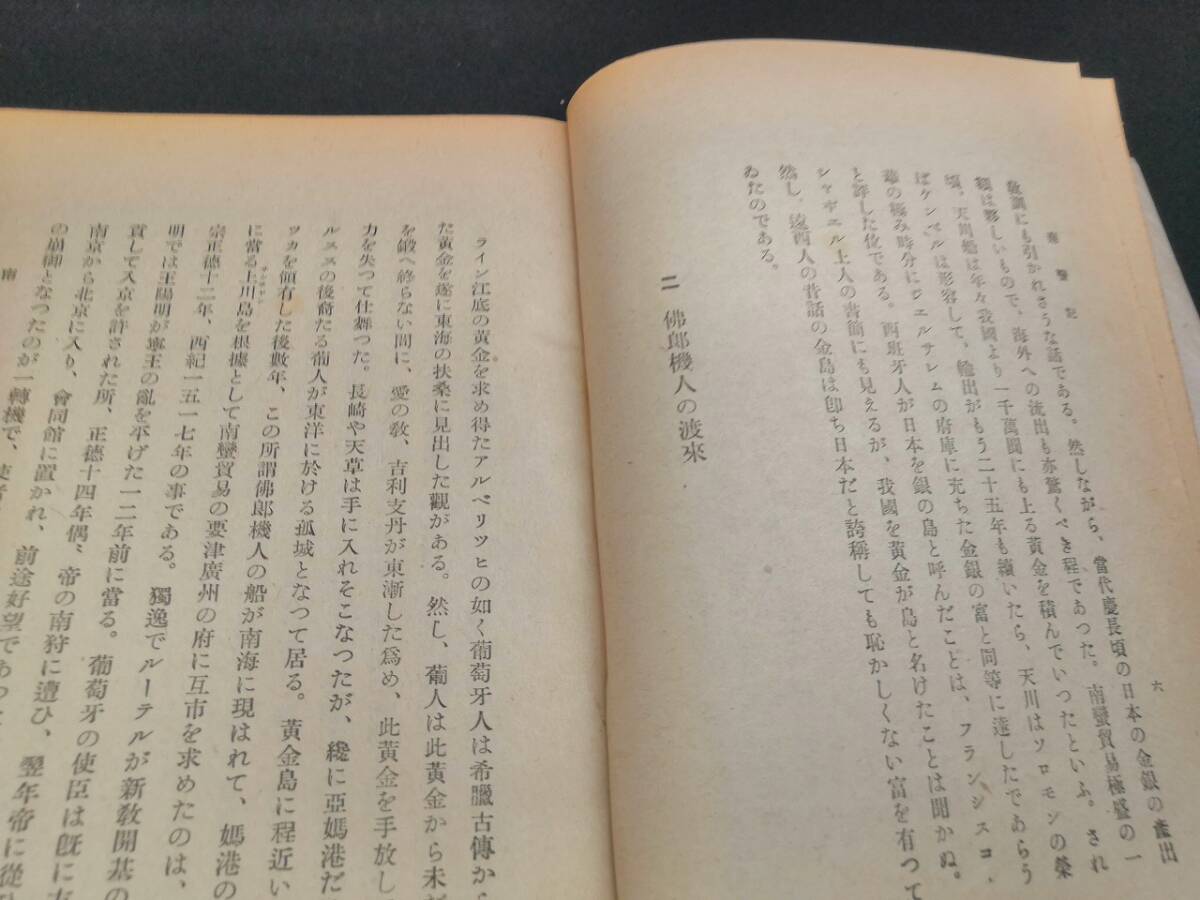 南蠻記
六
敎訓にも引かれさうな話である。然しながら、當代慶長頃の日本の金銀の產出
額は夥しいもので、海外への流出も亦驚くべき程であつた。南蠻貿易極盛の一
頃、天川船は年々我國より一千萬圓にも上る黃金を積んでいつたといふ。され
ばケンペルは形容して、輸出がもう二十五年も續いたら、天川はソロモンの榮
華の極み時分にゼエルサレムの府庫に充ちた金銀の富と同等に達したであらう
と評した位である。西班牙人が日本を銀の島と呼んだことは、フランシスコ、
シャヸエル上人の書簡にも見えるが、我國を黃金が島と名けたことは聞かぬ。
然し、遠西人の昔話の金島は卽ち日本だと誇稱しても恥かしくない富を有つて
ゐたのである。
二 佛郎機人の渡來
ライン江底の黃金を求め得たアルベリツヒの如く葡萄牙人は希臘古傳から
た黃金を遂に東海の扶桑に見出した觀がある。然し、葡人は此黃金から未だ
を鍛へ終らない間に、愛の敎、吉利支丹が東漸した爲め、此黃金を手放し
力を失つて仕舞つた。長崎や天草は手に入れそこなつたが、纔に亞媽港だ
ルススの後裔たる葡人が東洋に於ける孤城となつて居る。黃金島に程近い
ツカを領有した後數年、この所謂佛郎機人の船が南海に現はれて、媽港の
に當る上川島を根據として南蠻貿易の要津廣州の府に互市を求めたのは、
宗正德十二年、西紀一五一七年の事である。獨逸でルーテルが新敎開基の
明では王陽明が寧王の亂を平げた一二年前に當る。葡萄牙の使臣は旣に
貢して入京を許された所、正德十四年偶〻帝の南狩に遭ひ、翌年帝に從
南京から北京に入り、會同館に置かれ、前途好望であつ
の崩御となつたのが一轉機で、使者
南